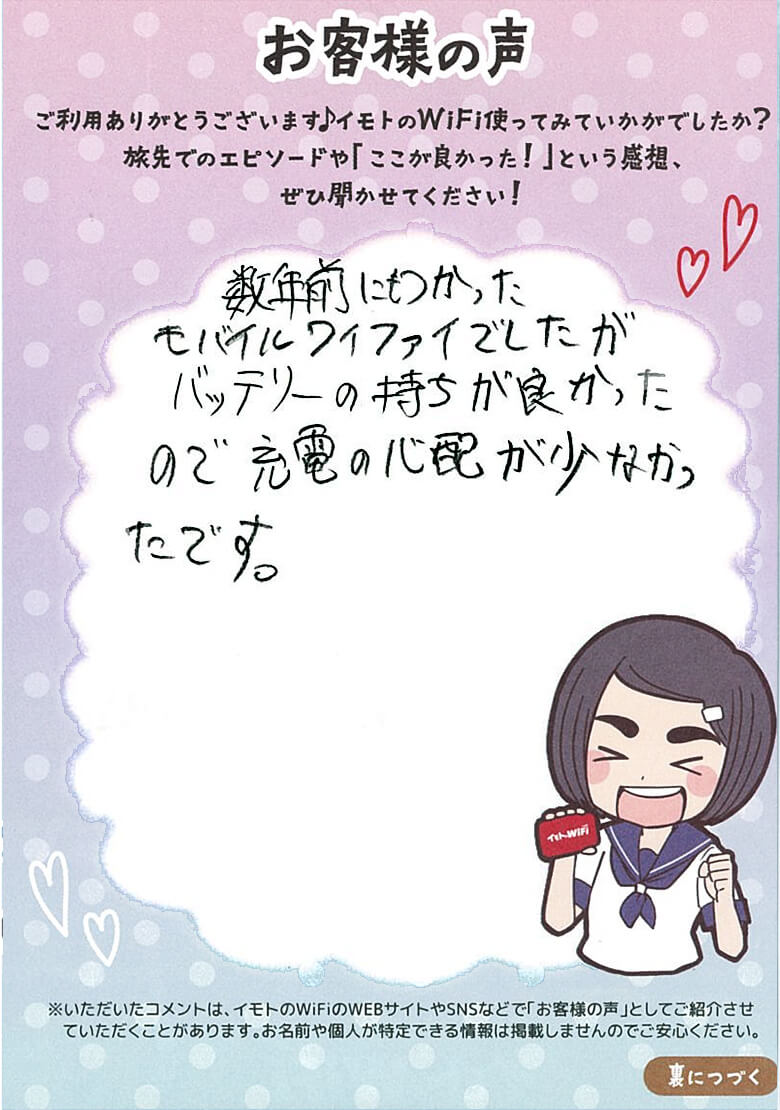 お客様の声
ご利用ありがとうございます♪イモトのWiFi使ってみていかがでしたか?
旅先でのエピソードや「ここが良かった!」という感想、
ぜひ聞かせてください!
数年前にもつかった
モバイルワイファイでしたが
バッテリーの持ちが良かった
ので充電の心配が少なかっ
たです。
イモトのWiFi
※いただいたコメントは、イモトのWiFiのWEBサイトやSNSなどで「お客様の声」としてご紹介させ
ていただくことがあります。お名前や個人が特定できる情報は掲載しませんのでご安心ください。
裏につづく